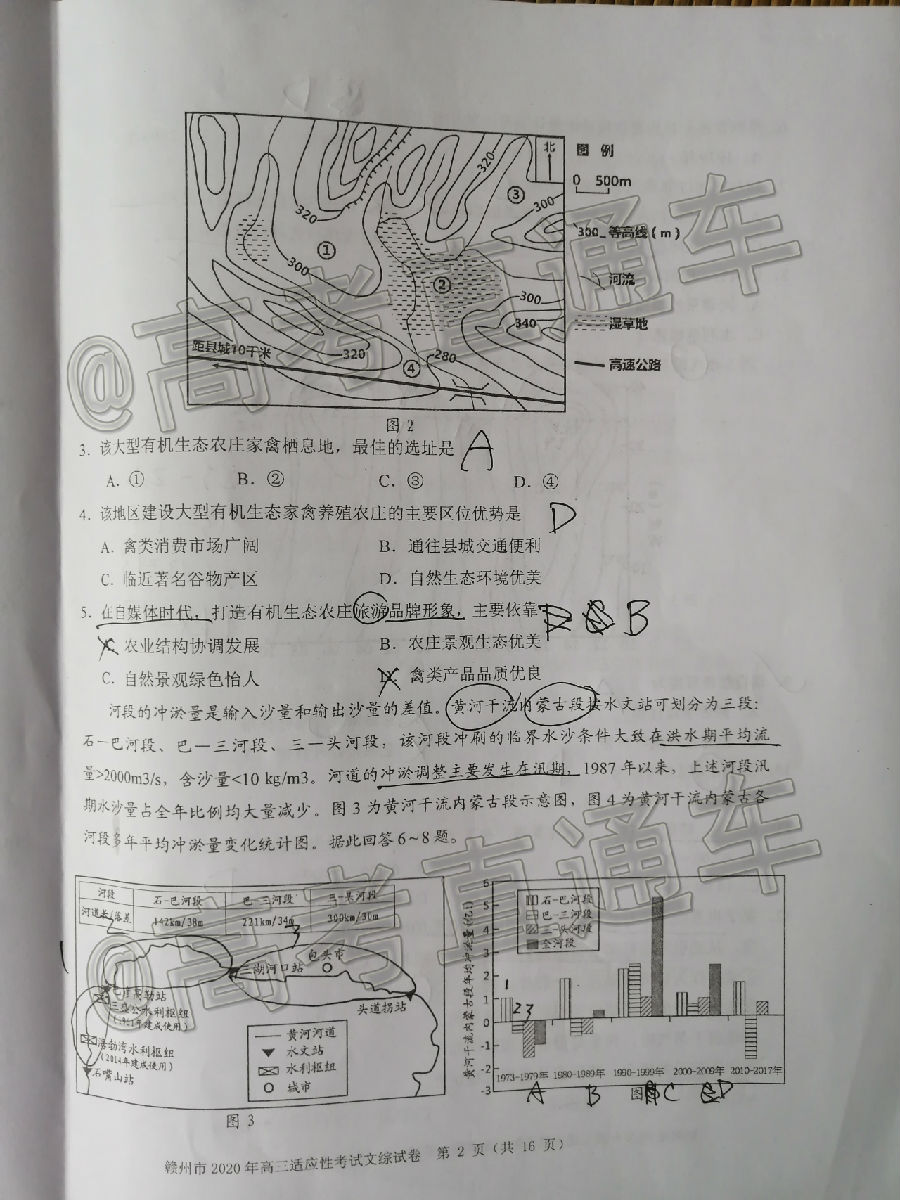 北
图 例
0 500m
300 等高线(m)
河流
湿草地
高速公路
320
320
③
300
320
300
①
②
300
300
340
320
280
④
距县城10千米
图 2
3. 该大型有机生态农庄家禽栖息地，最佳的选址是 A
A. ① B. ② C. ③ D. ④
4. 该地区建设大型有机生态家禽养殖农庄的主要区位优势是 D
A. 禽类消费市场广阔 B. 通往县城交通便利
C. 临近著名谷物产区 D. 自然生态环境优美
5. 在自媒体时代，打造有机生态农庄旅游品牌形象，主要依靠 B
农业结构协调发展 B. 农庄景观生态优美
C. 自然景观绿色怡人 禽类产品品质优良
河段的冲淤量是输入沙量和输出沙量的差值。黄河干流内蒙古段按水文站可划分为三段：
石一巴河段、巴一三河段、三一头河段；该河段冲刷的临界水沙条件大致在洪水期平均流
量>2000m3/s，含沙量<10 kg/m3。河道的冲淤调整主要发生在汛期，1987年以来，上述河段汛
期水沙量占全年比例均大量减少。图3为黄河干流内蒙古段示意图，图4为黄河干流内蒙古各
河段多年平均冲淤量变化统计图。据此回答6~8题。
河段 石一巴河段 巴一三河段
河道长/落差 142km/38m 221km/34m 300km/30m
三湖河口站
包头市
头道拐站
(2014年建成使用)
石嘴山站
黄河河道
水文站
水利枢纽
城市
图 3
黄河干流内蒙古段年均冲淤量(亿t)
5
4
3
2
1
0
-1
-2
-3
石-巴河段
巴-三河段
三-头河段
全河段
1 2 3
1973-1979年 1980-1989年 1990-1999年 2000-2009年 2010-2017年
A B C D
赣州市2020年高三适应性考试文综试卷 第 2 页（共 16 页）
@高考直通车
高考直通车